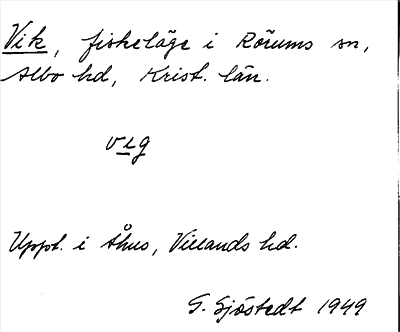 Vik, fiskeläge i Rörums sn,
Albo hd, Krist. län.
vig
Uppt. i Åhus, Villands hd.
G. Sjöstedt 1949